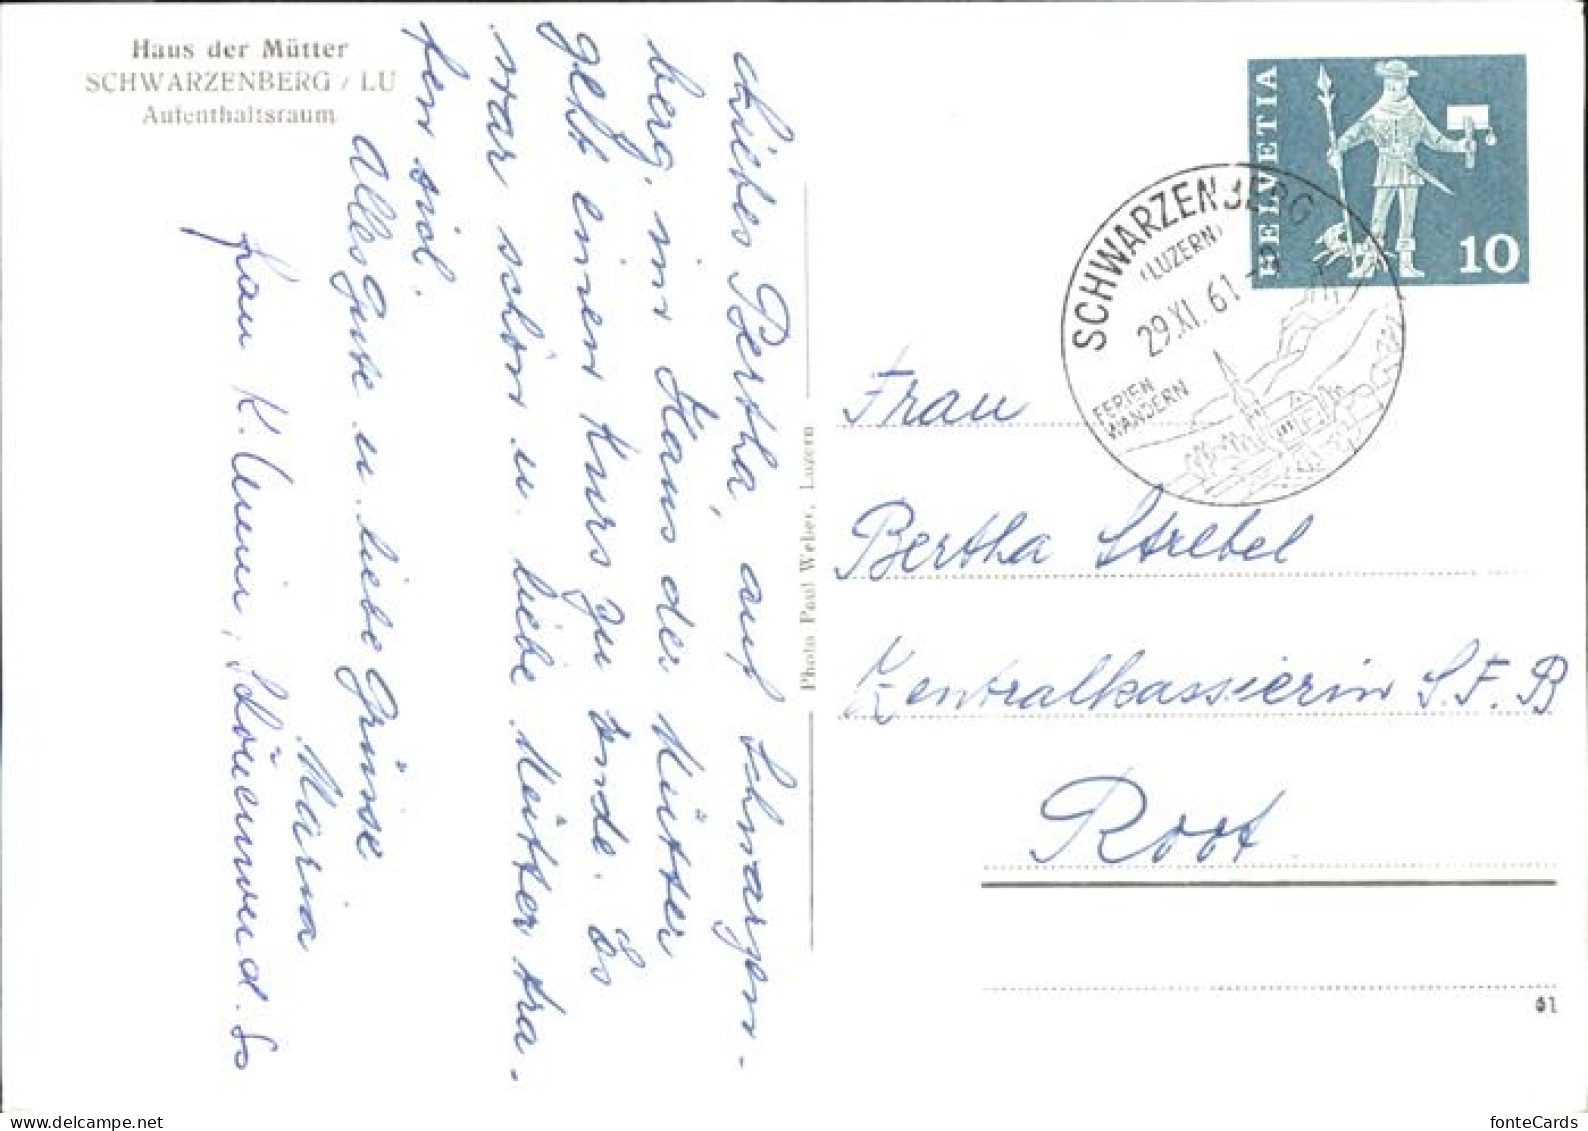 Haus der Mütter
SCHWARZENBERG / LU
Aufenthaltsraum
Liebes Bertha, auf Schwarzen-
berg, im Haus der Mütter
geht einen Kurs zu Ende. Es
war schön u. liebe Mütter tra-
fen sich.
Alles Gute u. liebe Grüsse
Maria
Frau K.
Photo Paul Weber, Luzern
HELVETIA
10
SCHWARZENBERG
(LUZERN)
29.XI.61
FERIEN
WANDERN
Frau
Bertha Strebel
Zentralkassierin S.F.B
Root
61
fonteCards